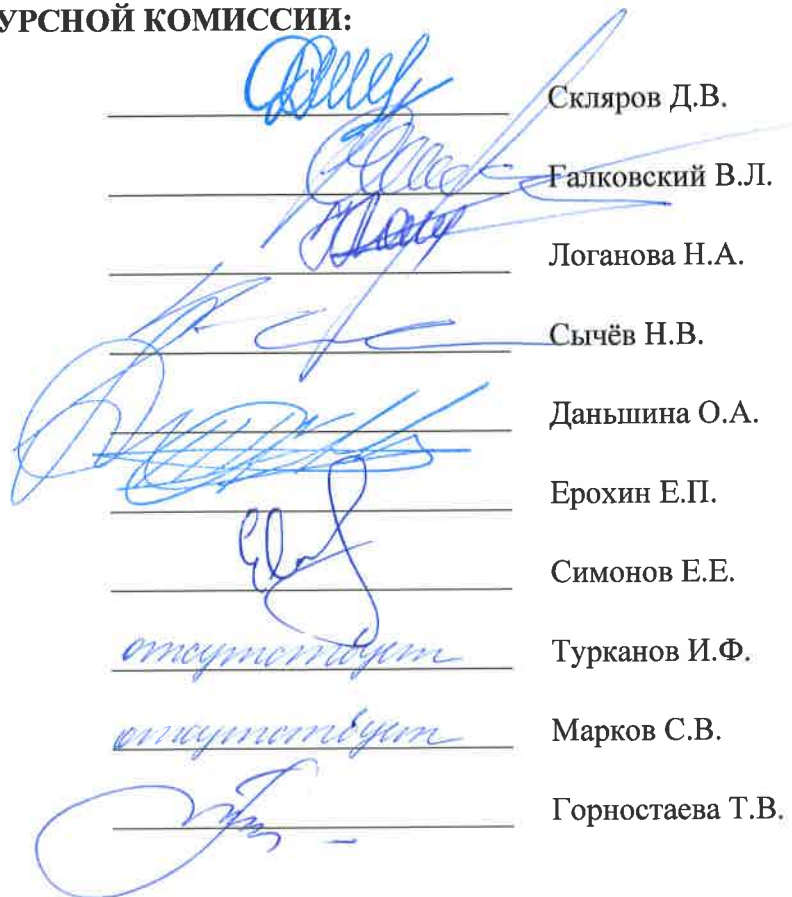 УРСНОЙ КОМИССИИ:
Скляров Д.В.
Галковский В.Л.
Логанова Н.А.
Сычёв Н.В.
Даньшина О.А.
Ерохин Е.П.
Симонов Е.Е.
отсутствует Турканов И.Ф.
отсутствует Марков С.В.
Горностаева Т.В.